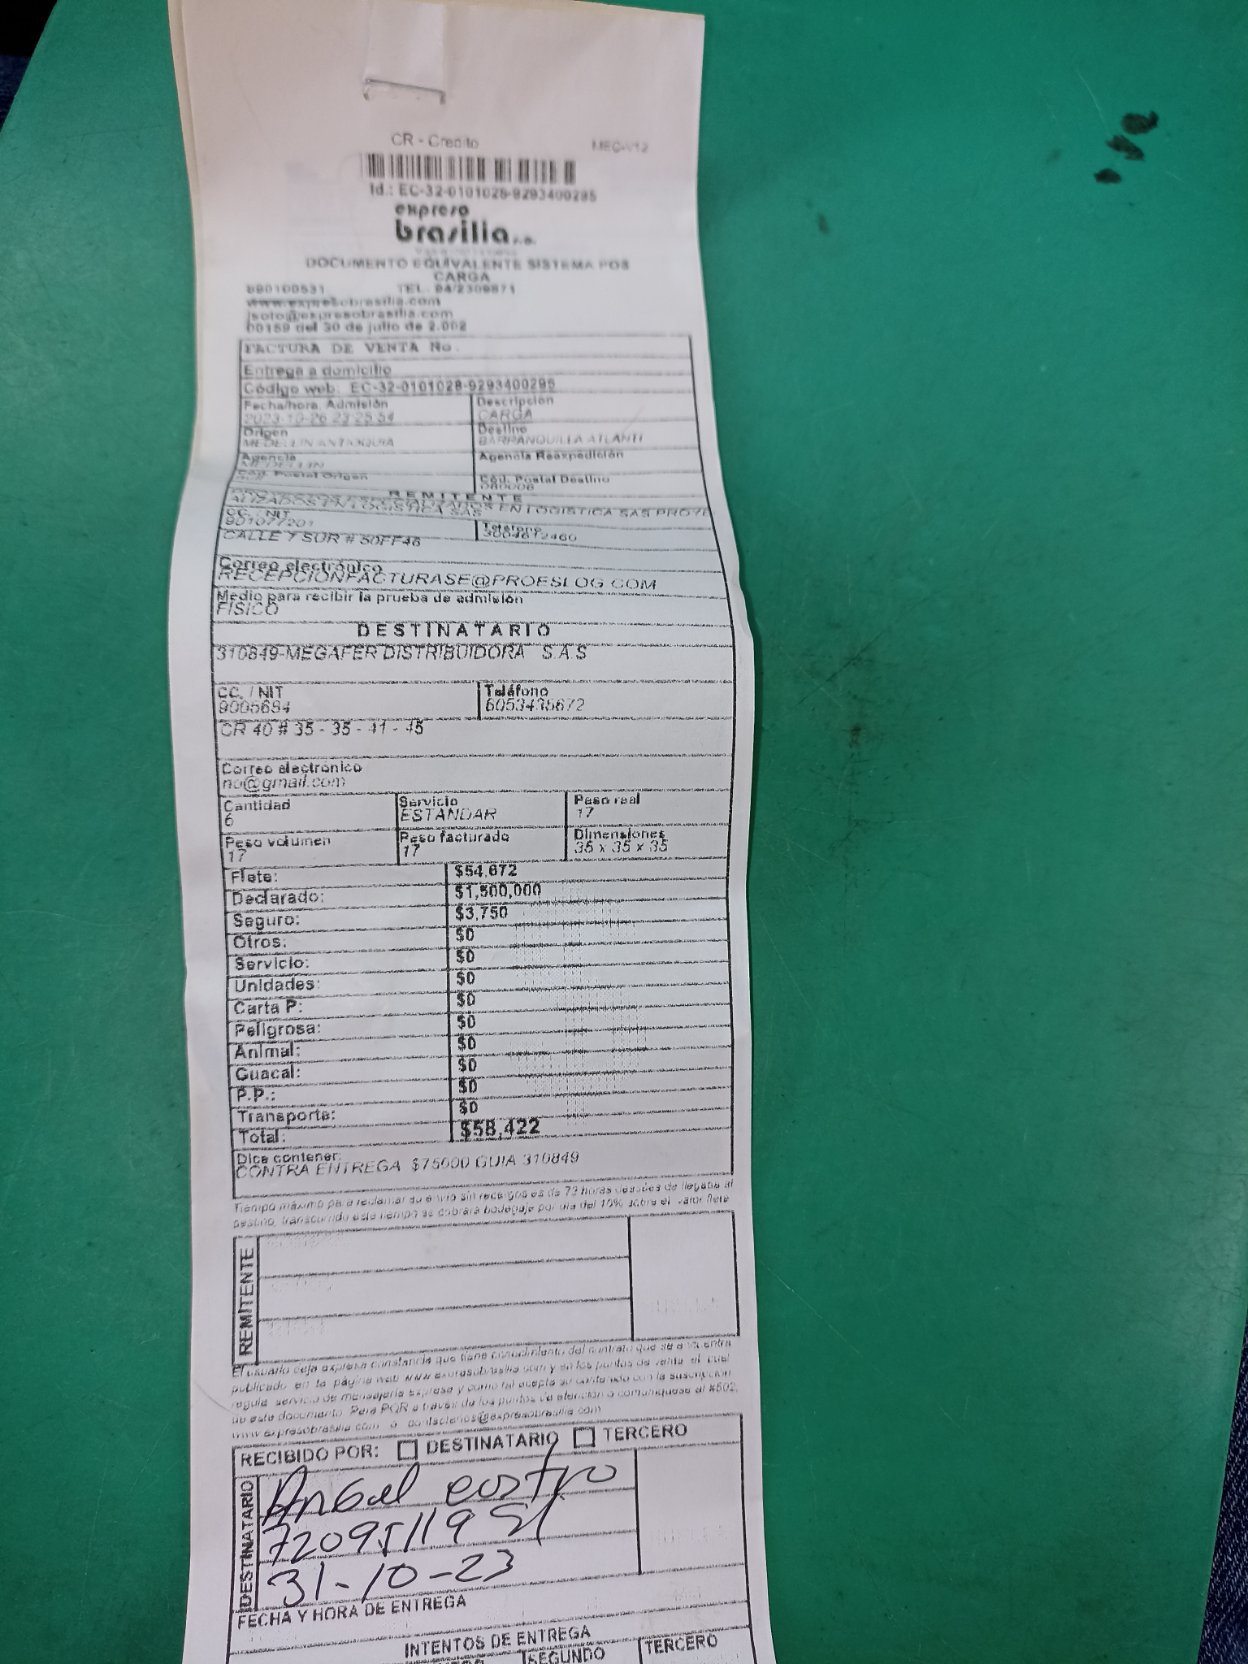 CR - Credito
MEC-V12
Id.: EC-32-0101028-9293400295
expreso
brasilia s.a.
DOCUMENTO EQUIVALENTE SISTEMA POS
CARGA
890100531 TEL.
www.expresobrasilia.com
jsoto@expresobrasilia.com
00159 del 30 de julio de 2.002
FACTURA DE VENTA No.
Entrega a domicilio
Código web: EC-32-0101028-9293400295
Fecha/hora. Admisión Descripción
2023-10-26 23:25:54 CARGA
Origen Destino
MEDELLIN ANTIOQUIA BARRANQUILLA ATLANTI
Agencia Agencia Reexpedición
MEDELLIN
Cód. Postal Origen Cód. Postal Destino
080006
REMITENTE
ALIZADOS EN LOGISTICA SAS
EN LOGISTICA SAS
CC. / NIT Teléfono
901077201 3004612460
CALLE 7 SUR # 50FF46
Correo electrónico
RECEPCIONFACTURASE@PROESLOG.COM
Medio para recibir la prueba de admisión
FISICO
DESTINATARIO
310849-MEGAFER DISTRIBUIDORA S.A.S
CC. / NIT Teléfono
9005694 6053435672
CR 40 # 35 - 35 - 41 - 45
Correo electrónico
no@gmail.com
Cantidad Servicio Peso real
6 ESTANDAR 17
Peso volumen Peso facturado Dimensiones
17 17 35 x 35 x 35
Flete: $54,672
Declarado: $1,500,000
Seguro: $3,750
Otros: $0
Servicio: $0
Unidades: $0
Carta P: $0
Peligrosa: $0
Animal: $0
Guacal: $0
P.P.: $0
Transporte: $0
Total: $58,422
Dice contener:
CONTRA ENTREGA $75000 GUIA 310849
Tiempo máximo para reclamar su envío sin recargos es de 72 horas después de llegada al
destino, transcurrido este tiempo se cobrará bodegaje por día del 10% sobre el valor flete
REMITENTE
El usuario deja expresa constancia que tiene conocimiento del contrato que se encuentra
publicado en la página web www.expresobrasilia.com y en los puntos de venta el cual
regula servicio de mensajería expresa y como tal acepta su contenido con la suscripción
de este documento. Para PQR a través de los puntos de atención o comuníquese al #502,
www.expresobrasilia.com o contactenos@expresobrasilia.com
RECIBIDO POR: DESTINATARIO TERCERO
DESTINATARIO
Angel castro
72095119
31-10-23
FECHA Y HORA DE ENTREGA
INTENTOS DE ENTREGA
SEGUNDO TERCERO